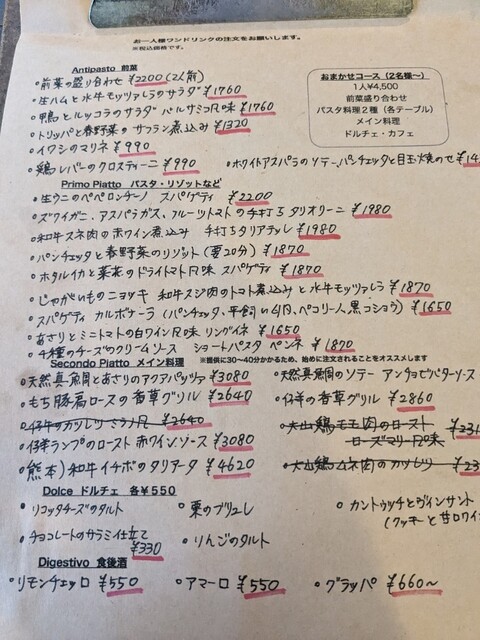 お一人様ワンドリンクの注文をお願いします。
※税込価格です。
Antipasto 前菜
・前菜の盛り合わせ ¥2200(2人前)
・生ハムと水牛モッツァレラのサラダ ¥1760
・鴨とルッコラのサラダ バルサミコ風味 ¥1760
・トリッパと春野菜のサフラン煮込み ¥1320
・イワシのマリネ ¥990
・鶏レバーのクロスティーニ ¥990
・ホワイトアスパラのソテー、パンチェッタと目玉焼のせ
おまかせコース(2名様〜)
1人¥4,500
前菜盛り合わせ
パスタ料理2種(各テーブル)
メイン料理
ドルチェ・カフェ
Primo Piatto パスタ・リゾットなど
・生ウニのペペロンチーノ スパゲティ ¥2200
・ズワイガニ、アスパラガス、フルーツトマトの手打ちタリオリーニ ¥1980
・和牛スネ肉の赤ワイン煮込み 手打ちタリアテッレ ¥1980
・パンチェッタと春野菜のリゾット(要20分) ¥1870
・ホタルイカと菜花のドライトマト風味 スパゲティ ¥1870
・じゃがいものニョッキ 和牛スジ肉のトマト煮込みと水牛モッツァレラ ¥1870
・スパゲティ カルボナーラ(パンチェッタ、平飼い卵、ペコリーノ、黒コショウ) ¥1650
・あさりとミニトマトの白ワイン風味 リングイネ ¥1650
・4種のチーズのクリームソース ショートパスタ ペンネ ¥1870
Secondo Piatto メイン料理 ※提供に30〜40分かかるため、始めに注文されることをオススメします
・天然真鯛とあさりのアクアパッツァ ¥3080
・天然真鯛のソテー アンチョビバターソース
・もち豚肩ロースの香草グリル ¥2640
・仔羊の香草グリル ¥2860
・仔牛のカツレツ ミラノ風 ¥2640
・大山鶏モモ肉のロースト
ローズマリー風味
・仔羊ランプのロースト 赤ワインソース ¥3080
・熊本)和牛イチボのタリアータ ¥4620
・大山鶏ムネ肉のカツレツ
Dolce ドルチェ 各¥550
・リコッタチーズのタルト
・栗のブリュレ
・カントゥッチとヴィンサント
(クッキーと甘口ワイン
・チョコレートのサラミ仕立て
¥330
・りんごのタルト
Digestivo 食後酒
・リモンチェッロ ¥550
・アマーロ ¥550
・グラッパ ¥660〜